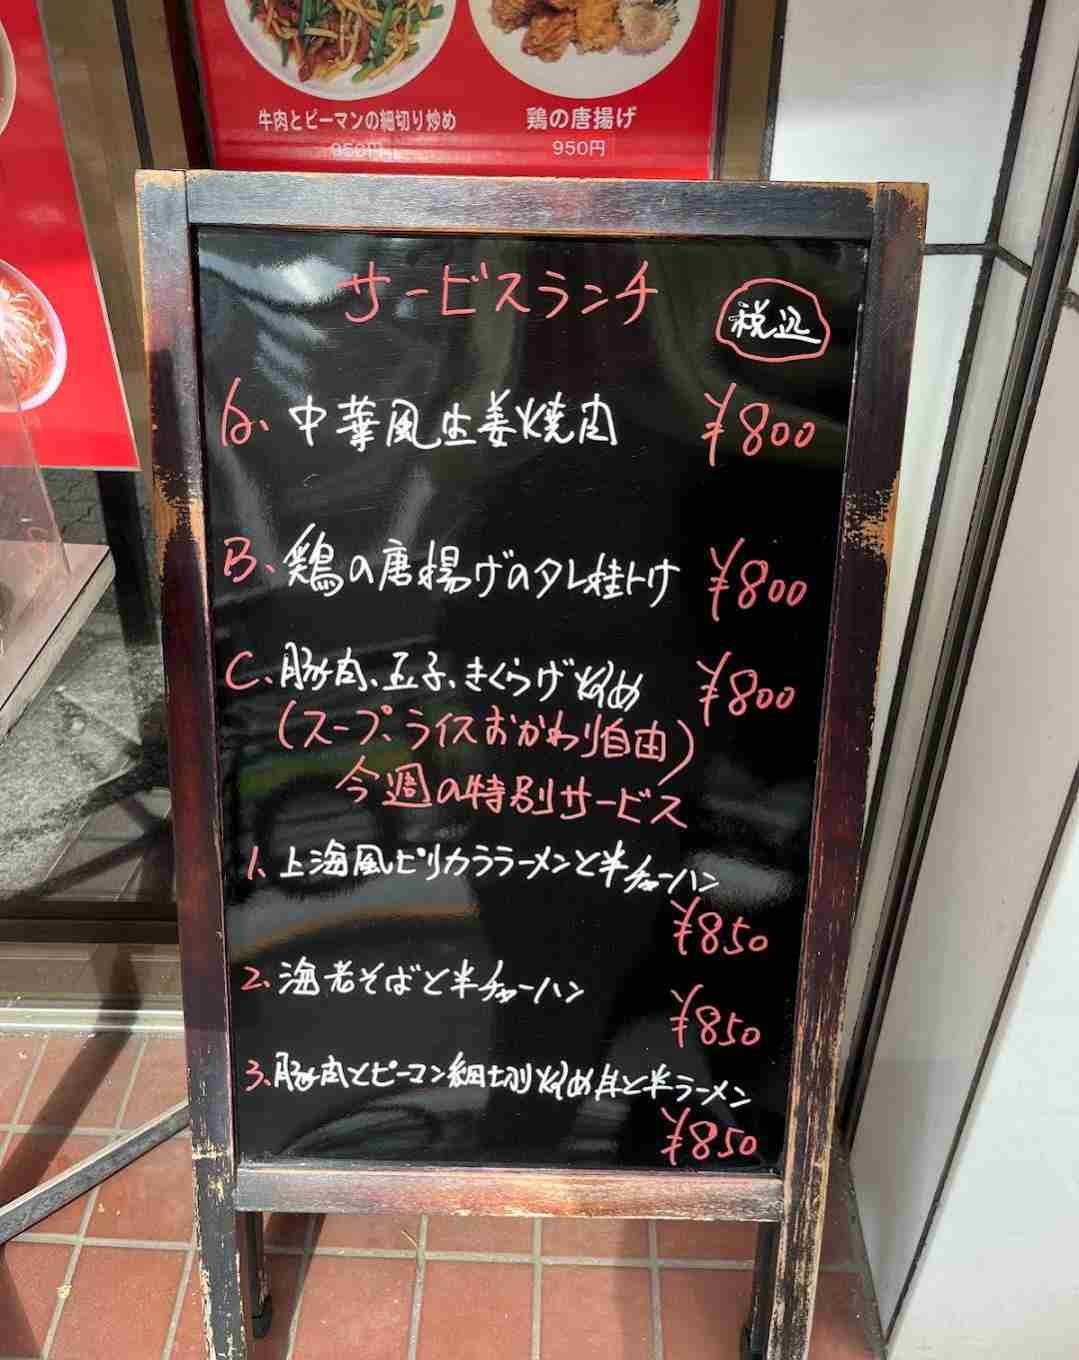 牛肉とピーマンの細切り炒め
950円
鶏の唐揚げ
950円
サービスランチ
税込
A. 中華風生姜焼肉 ¥800
B、鶏の唐揚げのタレ掛け ¥800
C、豚肉、玉子、きくらげ炒め ¥800
(スープ、ライスおかわり自由)
今週の特別サービス
1、上海風ピリカララーメンと半チャーハン
¥850
2、海老そばと半チャーハン
¥850
3、豚肉とピーマン細切り炒め丼と半ラーメン
¥850